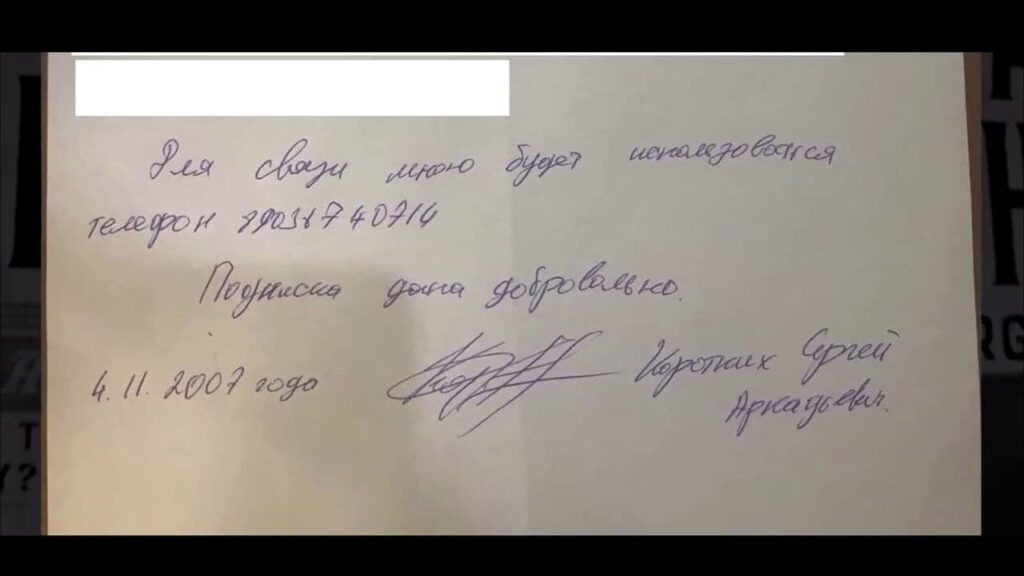 Для связи мною будет использоваться
телефон 89038740714
Подписка дана добровольно.
4.11.2007 года Коротких Сергей
Аркадьевич.